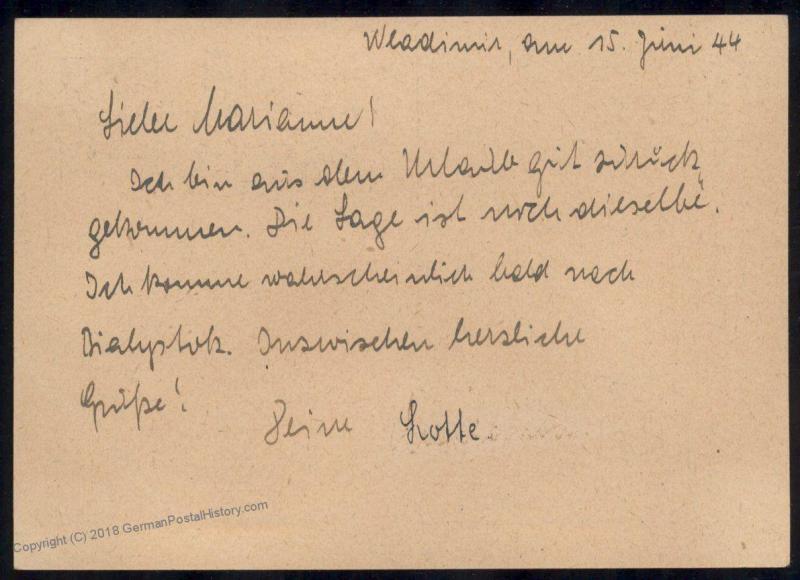 Wladimir, am 15. Juni 44
Liebe Marianne!
Ich bin aus dem Urlaub gut zurück
gekommen. Die Lage ist noch dieselbe.
Ich komme wahrscheinlich bald nach
Bialystok. Inzwischen herzliche
Grüße!
Deine Lotte.
Copyright (C) 2018 GermanPostalHistory.com